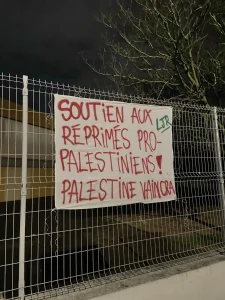 SOUTIEN AUX
RÉPRIMÉS PRO-
PALESTINIENS!
PALESTINE VAINCRA
LJR